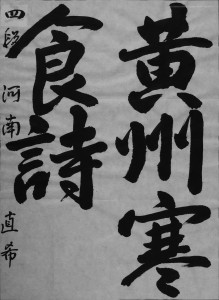 黄州寒
食詩
四段 河南 直希